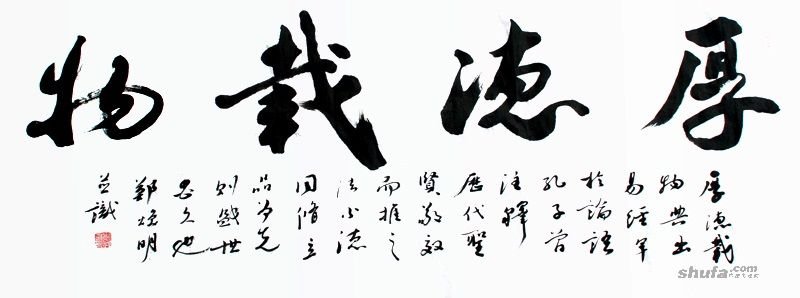 厚德載物
厚德載
物典出
易經早
於論語
孔子曾
注釋
歷代聖
賢敬效
而推之
法小德
同脩立
品為先
則盛世
久也
鄭明
並識
shufa.com